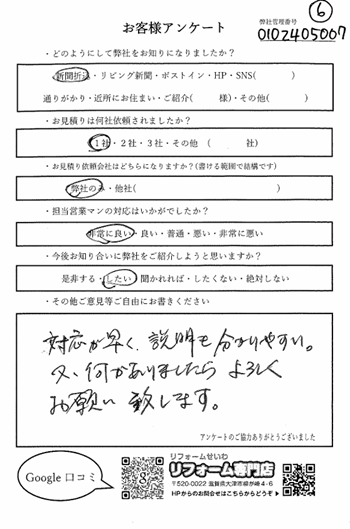 ⑥
お客様アンケート
弊社管理番号
0102405007
・どのようにして弊社をお知りになりましたか？
新聞折込・リビング新聞・ポストイン・HP・SNS( )
通りがかり・近所にお住まい・ご紹介( 様)・その他( )
・お見積りは何社依頼されましたか？
1社・2社・3社・その他 ( 社)
・お見積り依頼会社はどちらになりますか？(書ける範囲で結構です)
弊社のみ・他社( )
・担当営業マンの対応はいかがでしたか？
非常に良い・良い・普通・悪い・非常に悪い
・今後お知り合いに弊社をご紹介しようと思いますか？
是非する・したい・聞かれれば・したくない・絶対しない
・その他ご意見等ご自由にお書きください
対応が早く、説明も分かりやすい。
又、何かありましたら よろしく
お願い致します。
アンケートのご協力ありがとうございました
Google 口コミ
リフォームせいわ
リフォーム専門店
〒520-0022 滋賀県大津市柳が崎4-6
HPからのお問合せはこちらからどうぞ▶